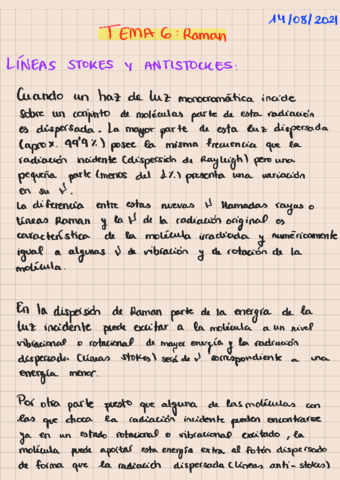 14/08/2021
TEMA 6: Raman
LÍNEAS STOKES Y ANTISTOCKES:
Cuando un haz de luz monocromática incide
sobre un conjunto de moléculas parte de esta radiación
es dispersada. La mayor parte de esta luz dispersada
(aprox. 99'9%) posee la misma frecuencia que la
radiación incidente (dispersión de Rayleigh) pero una
pequeña parte (menos del 1%) presenta una variación
en su ν.
La diferencia entre estas nuevas ν llamadas rayas o
líneas Raman y la ν de la radiación original es
característica de la molécula irradiada y numéricamente
igual a algunas ν de vibración y de rotación de la
molécula.
En la dispersión de Raman parte de la energía de la
luz incidente puede excitar a la molécula a un nivel
vibracional o rotacional de mayor energía y la radiación
dispersada (líneas stokes) será de ν correspondiente a una
energía menor.
Por otra parte puesto que alguna de las moléculas con
las que choca la radiación incidente pueden encontrarse
ya en un estado rotacional o vibracional excitado, la
molécula puede aportar esta energía extra al fotón dispersado
de forma que la radiación dispersada (líneas anti-stokes)